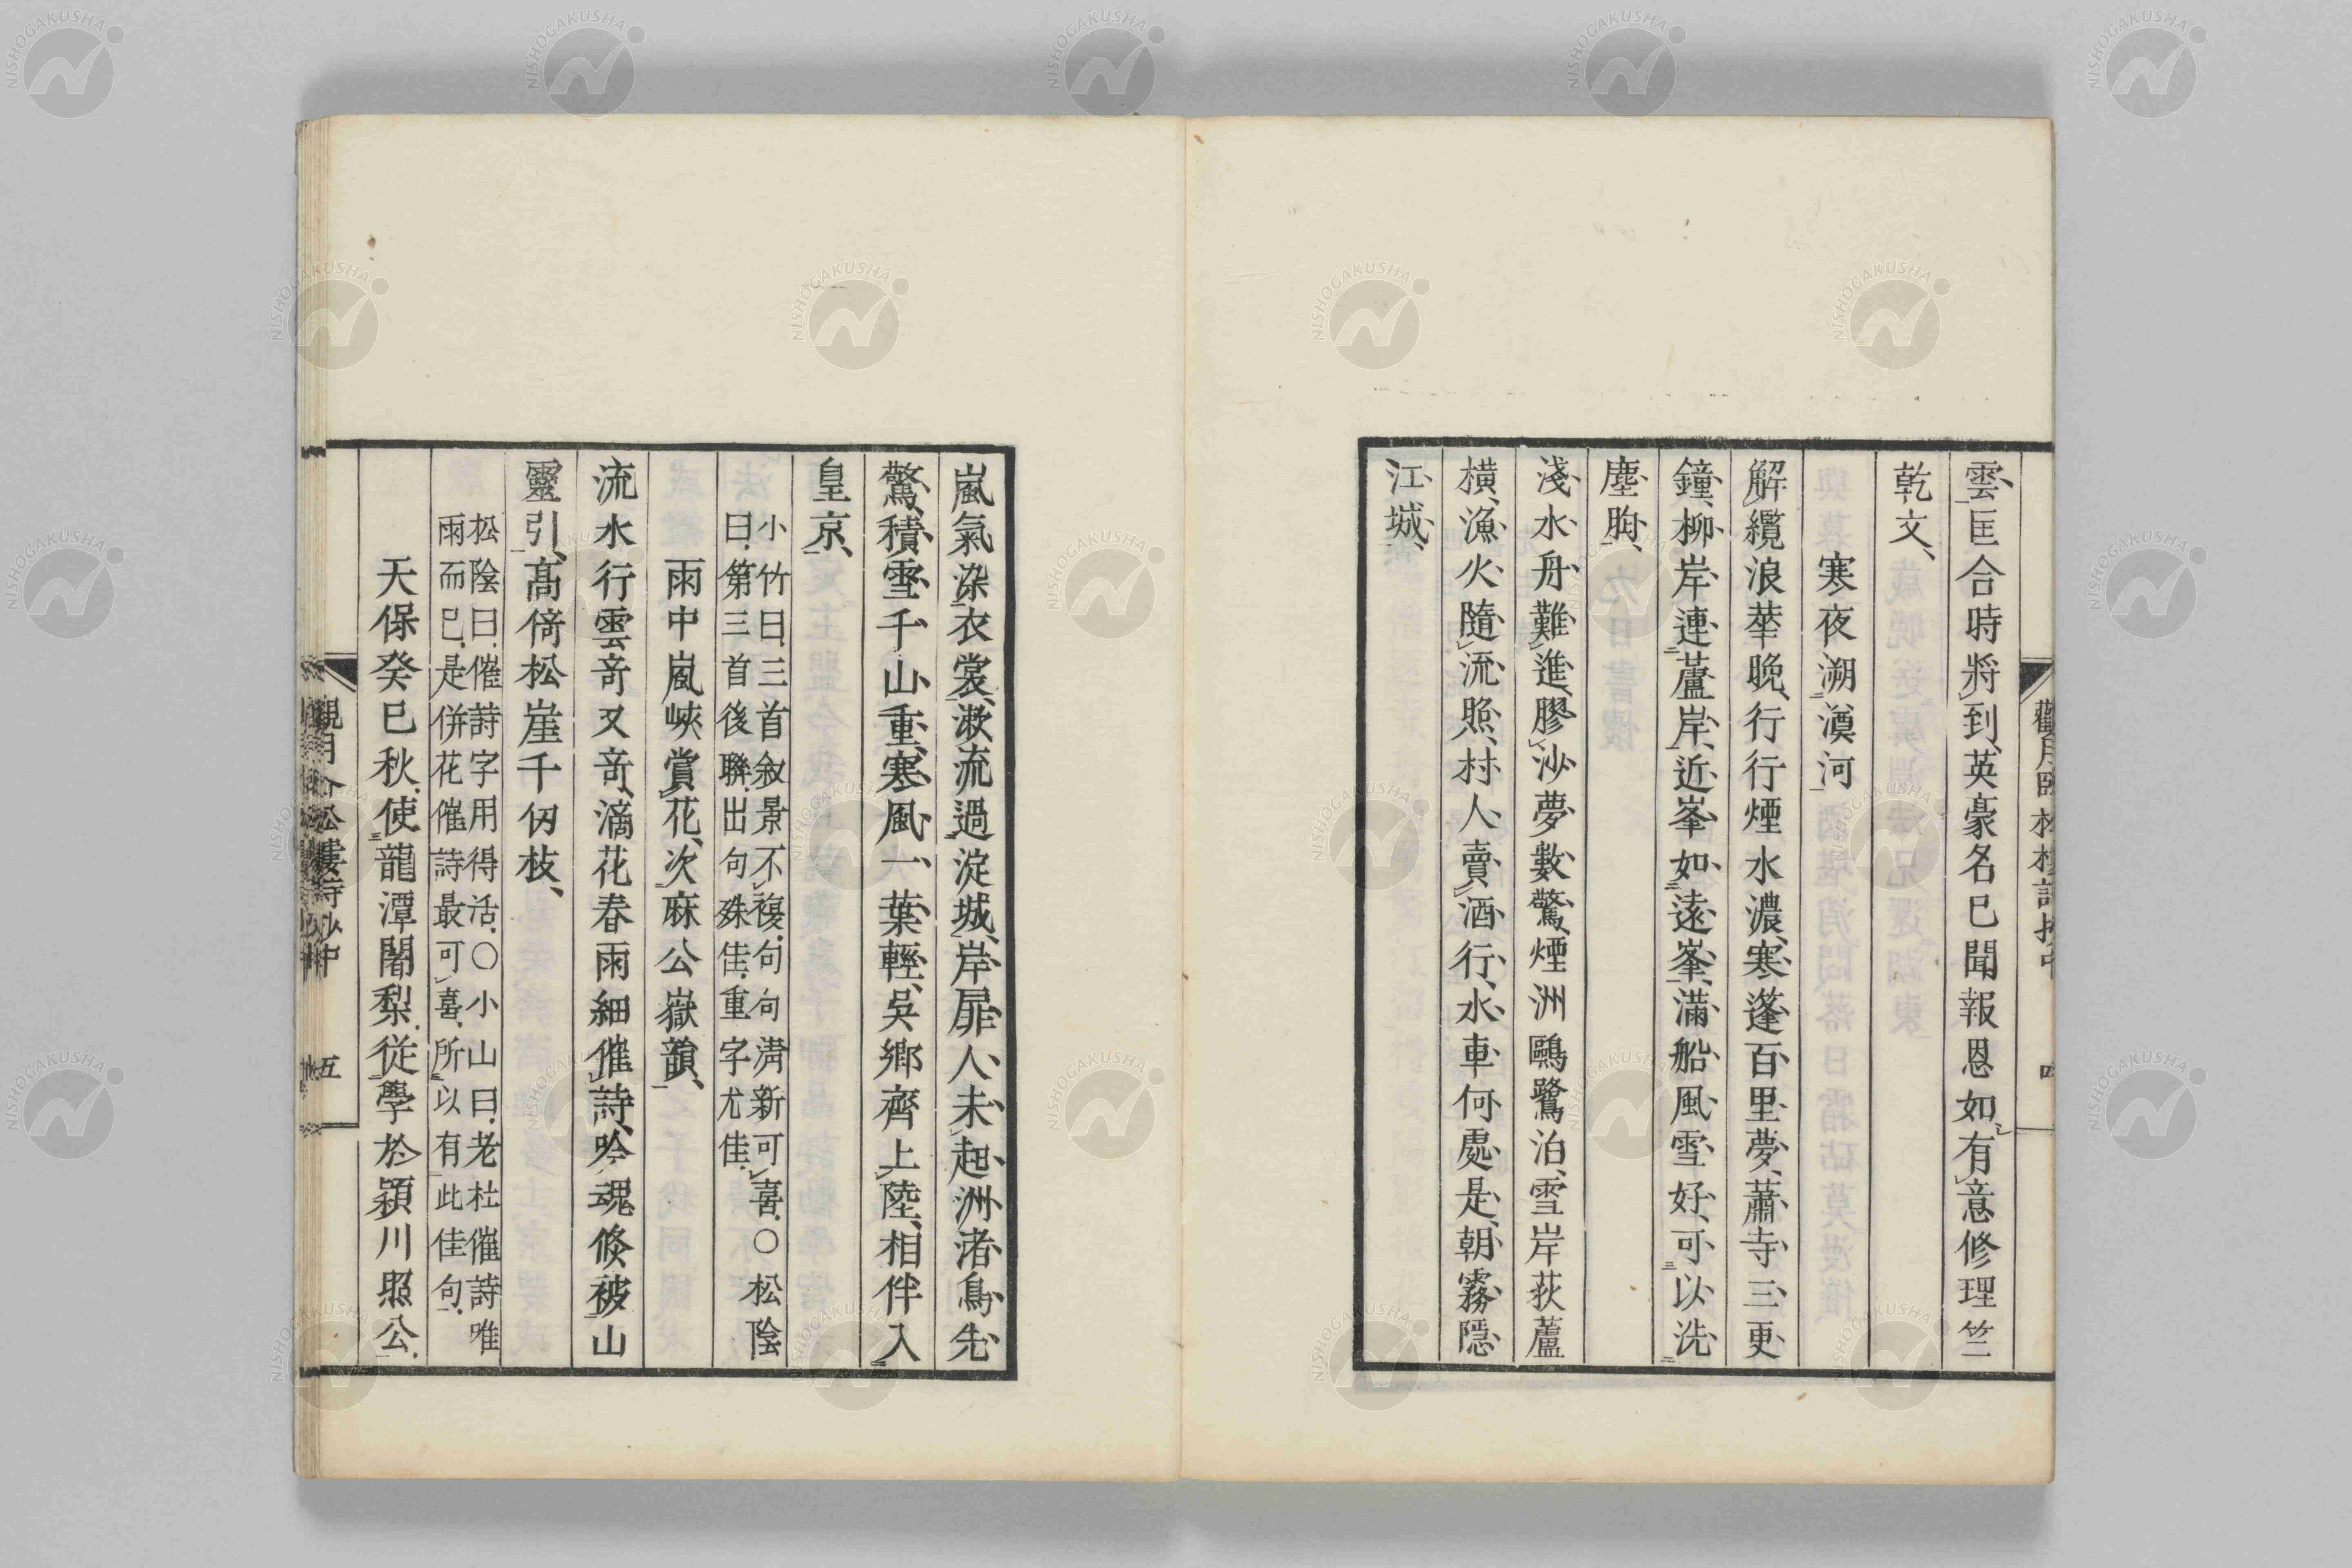 雲匡合時將到英豪名已聞報恩如有意修理竺
乾文
寒夜溯澱河
解纜浪華晚行行煙水濃寒蓬百里夢蕭寺三更
鐘柳岸連蘆岸近峯如遠峯滿船風雪好可以洗
塵胸
淺水舟難進膠沙夢數驚煙洲鷗鷺泊雪岸荻蘆
橫漁火隨流照村人賣酒行水車何處是朝霧隱
江城
嵐氣染衣裳漱流過淀城岸扉人未起洲渚鳥先
驚積雪千山重寒風一葉輕吳鄉齊上陸相伴入
皇京
小竹曰三首敘景不複句句淸新可喜○松陰
曰第三首後聯出句殊佳重字尤佳
雨中嵐峽賞花次麻公嶽韻
流水行雲奇又奇滴花春雨細催詩吟魂倏被山
靈引高倚松崖千仞枝
松陰曰催詩字用得活○小山曰老杜催詩唯
雨而已是併花催詩最可喜所以有此佳句
天保癸巳秋使龍潭闍梨從學於潁川照公
五
NISHOGAKUSHA